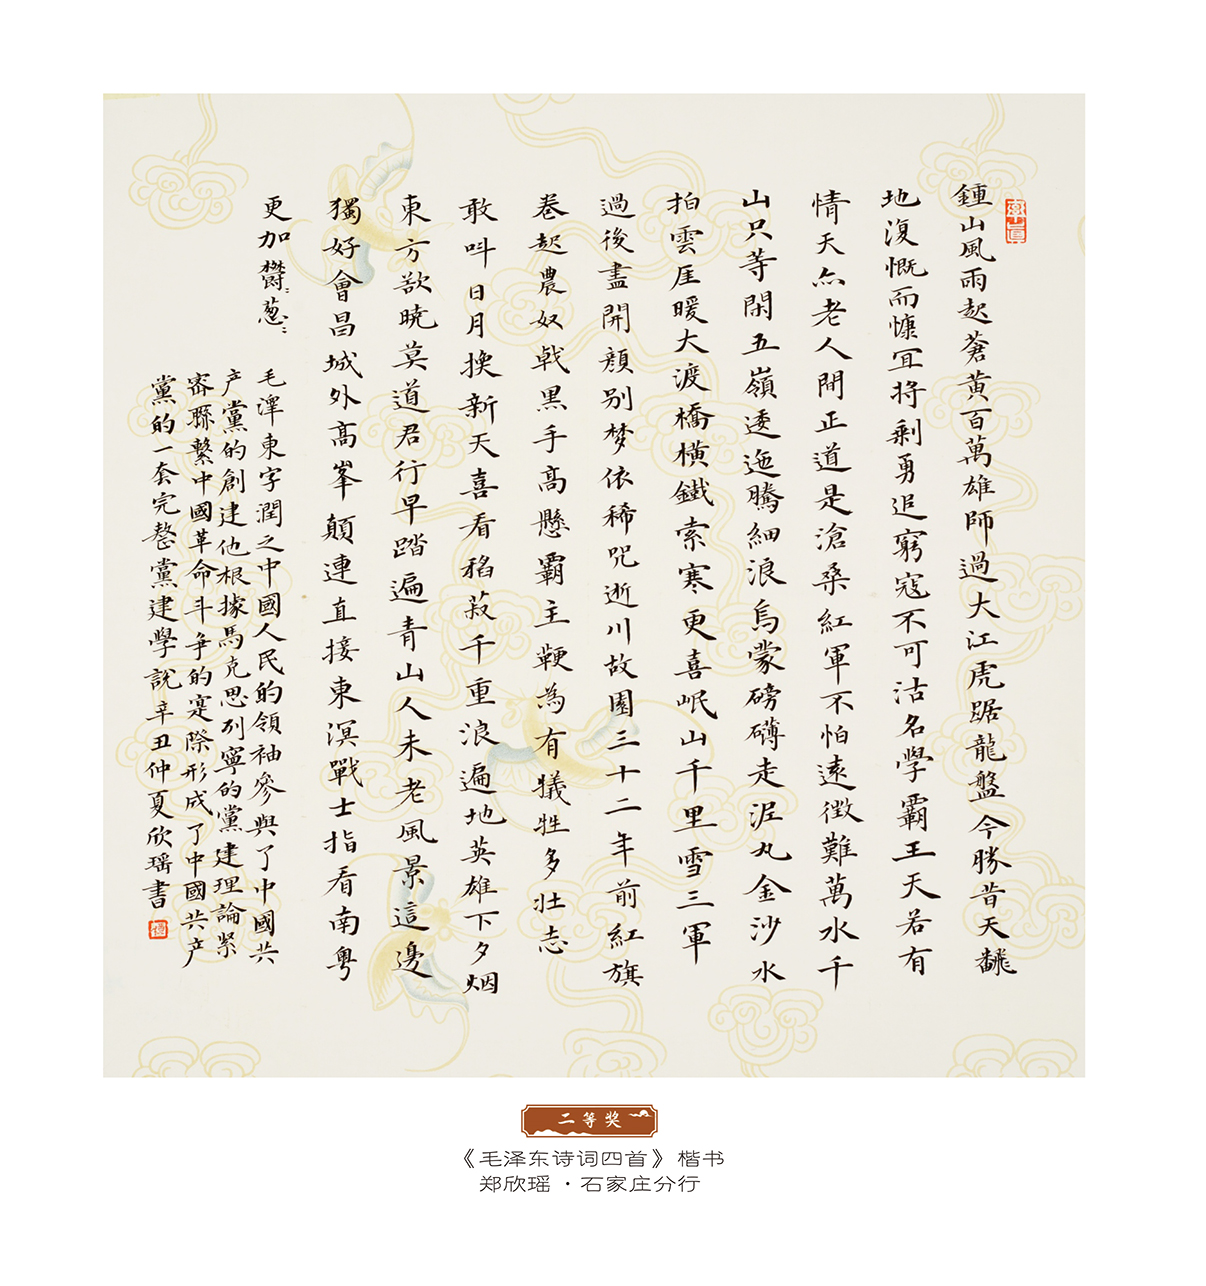 鍾山風雨起蒼黄百萬雄師過大江虎踞龍盤今勝昔天飜
地復慨而慷宜将剩勇追窮寇不可沽名學霸王天若有
情天亦老人間正道是滄桑紅軍不怕遠徵難萬水千
山只等閑五嶺逶迤騰細浪烏蒙磅礴走泥丸金沙水
拍雲崖暖大渡橋横鐵索寒更喜岷山千里雪三軍
過後盡開顔别梦依稀咒逝川故園三十二年前紅旗
卷起農奴戟黑手高懸霸主鞭為有犧牲多壮志
敢叫日月換新天喜看稻菽千重浪遍地英雄下夕烟
東方欲曉莫道君行早踏遍青山人未老風景這邊
獨好會昌城外高峯顛連直接東溟戰士指看南粤
更加鬱〻葱〻
毛澤東字潤之中國人民的領袖參與了中國共
产黨的創建他根據馬克思列寧的黨建理論紧
密聯繫中國革命斗争的寔際形成了中國共产
黨的一套完整黨建學說辛丑仲夏欣瑶書
二等奖
《毛泽东诗词四首》楷书
郑欣瑶·石家庄分行